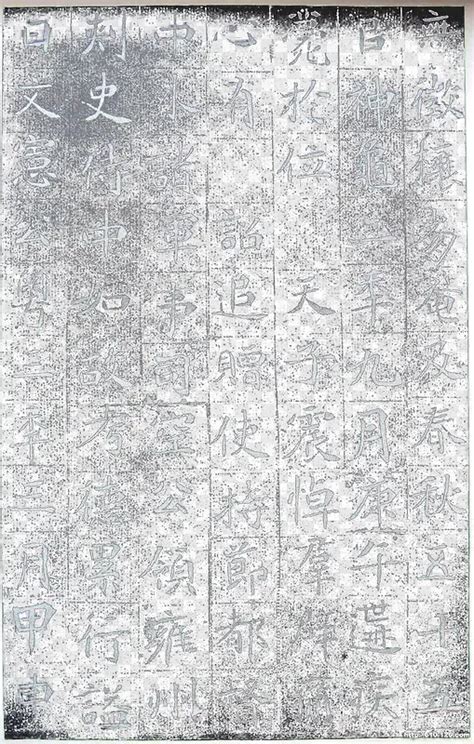 及春秋五十五
神龜二年九月庚午遘疾
薨於位 天子震悼群辟痛
心有 詔追贈使持節都督
中外諸軍事司空公領雍州
刺史侍中如故考德累行謚
曰文憲公粵三年三月甲申